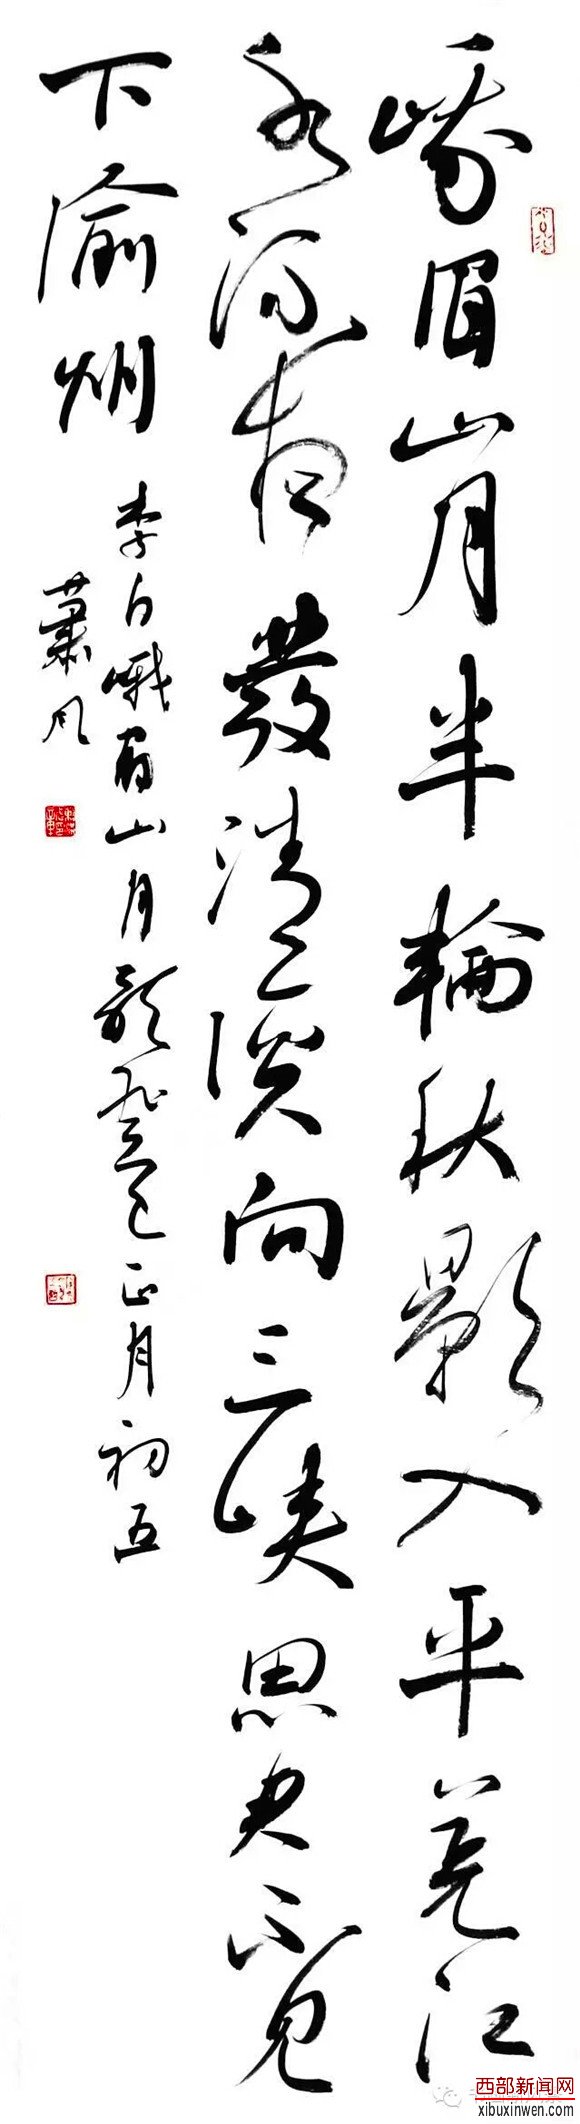 峨眉山月半輪秋影入平羌江
水流夜發清溪向三峽思君不見
下渝州
李白峨眉山月歌癸巳正月初五
蕭風
西部新闻网
xibuxinwen.com